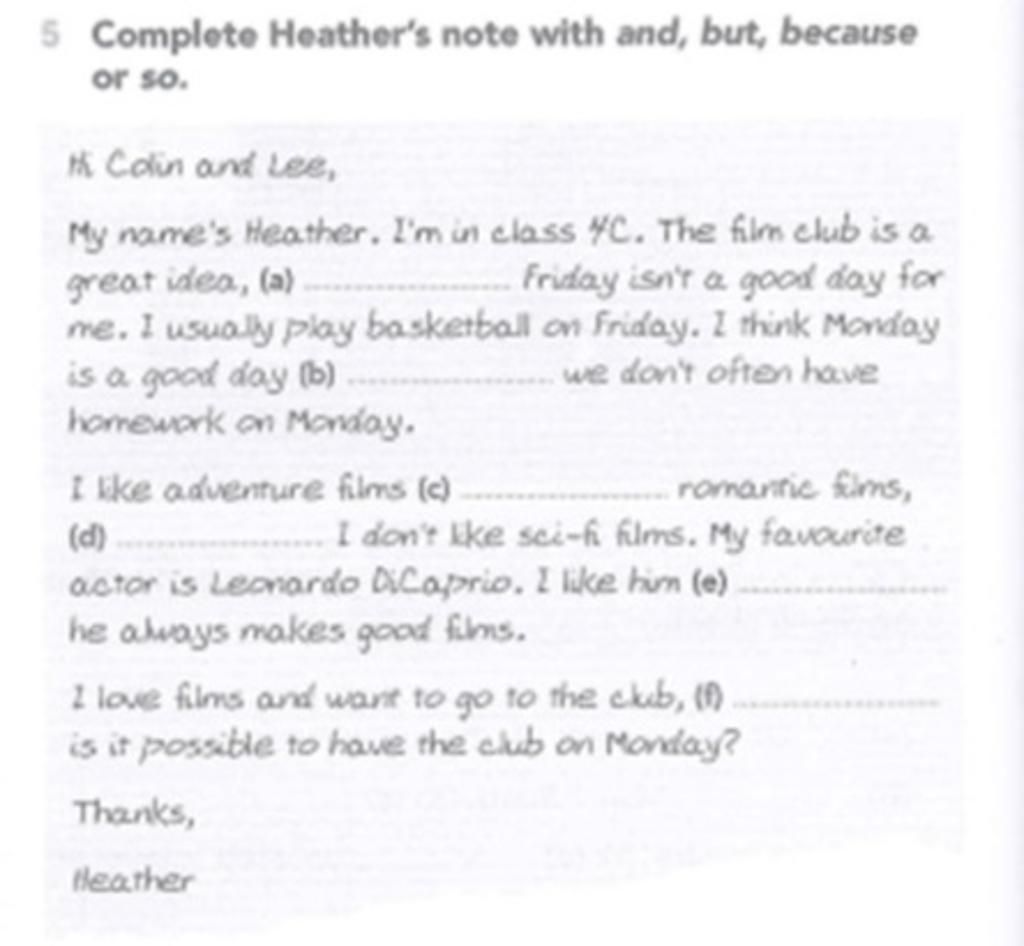 5 Complete Heather's note with and, but, because
or so.
Hi Colin and Lee,
My name's Heather. I'm in class 4C. The film club is a
great idea, (a) .................... Friday isn't a good day for
me. I usually play basketball on Friday. I think Monday
is a good day (b) .................... we don't often have
homework on Monday.
I like adventure films (c) .................... romantic films,
(d) .................... I don't like sci-fi films. My favourite
actor is Leonardo DiCaprio. I like him (e) ....................
he always makes good films.
I love films and want to go to the club, (f) ....................
is it possible to have the club on Monday?
Thanks,
Heather